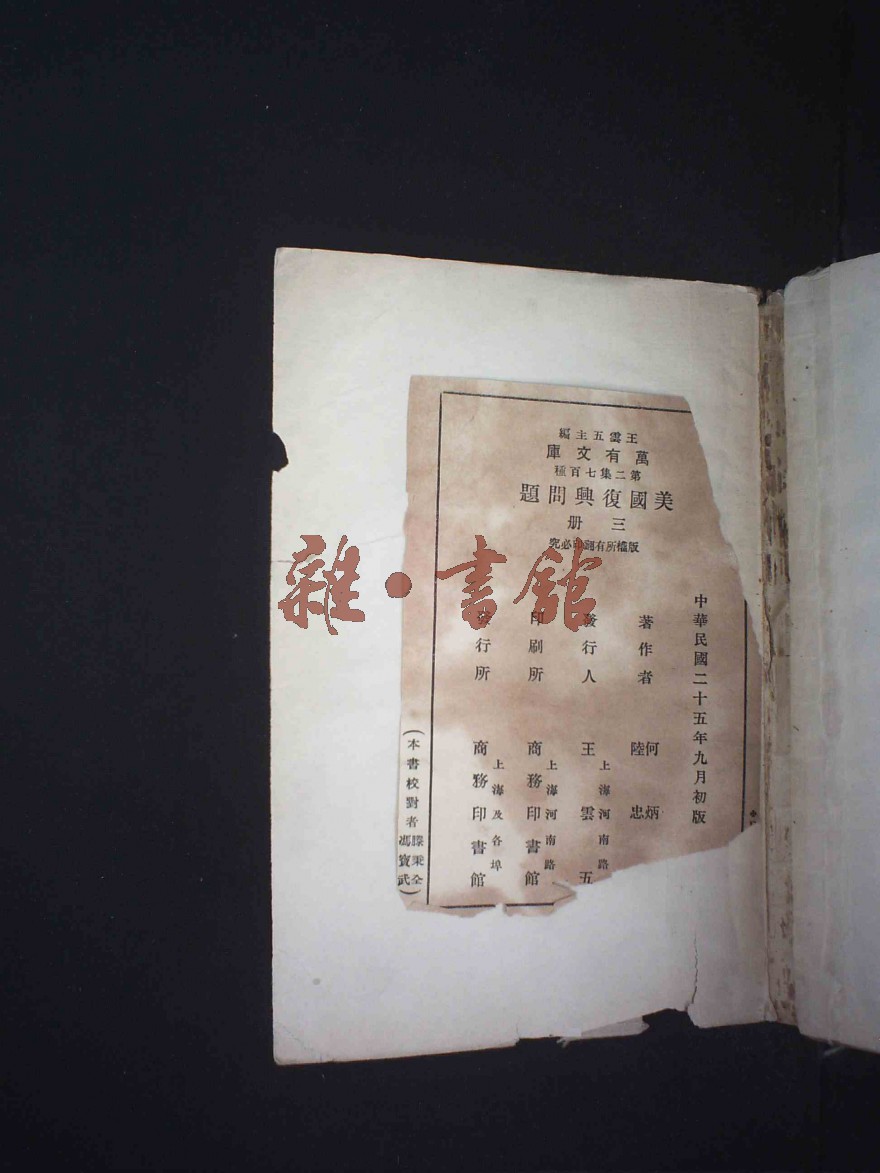 王雲五主編
萬有文庫
第二集七百種
美國復興問題
三册
版權所有翻印必究
中華民國二十五年九月初版
著作者 何炳 陸忠
發行人 王雲五
上海河南路
印刷所 商務印書館
上海河南路
發行所 商務印書館
上海及各埠
(本書校對者滕秉全馮寳武)
雜·書館